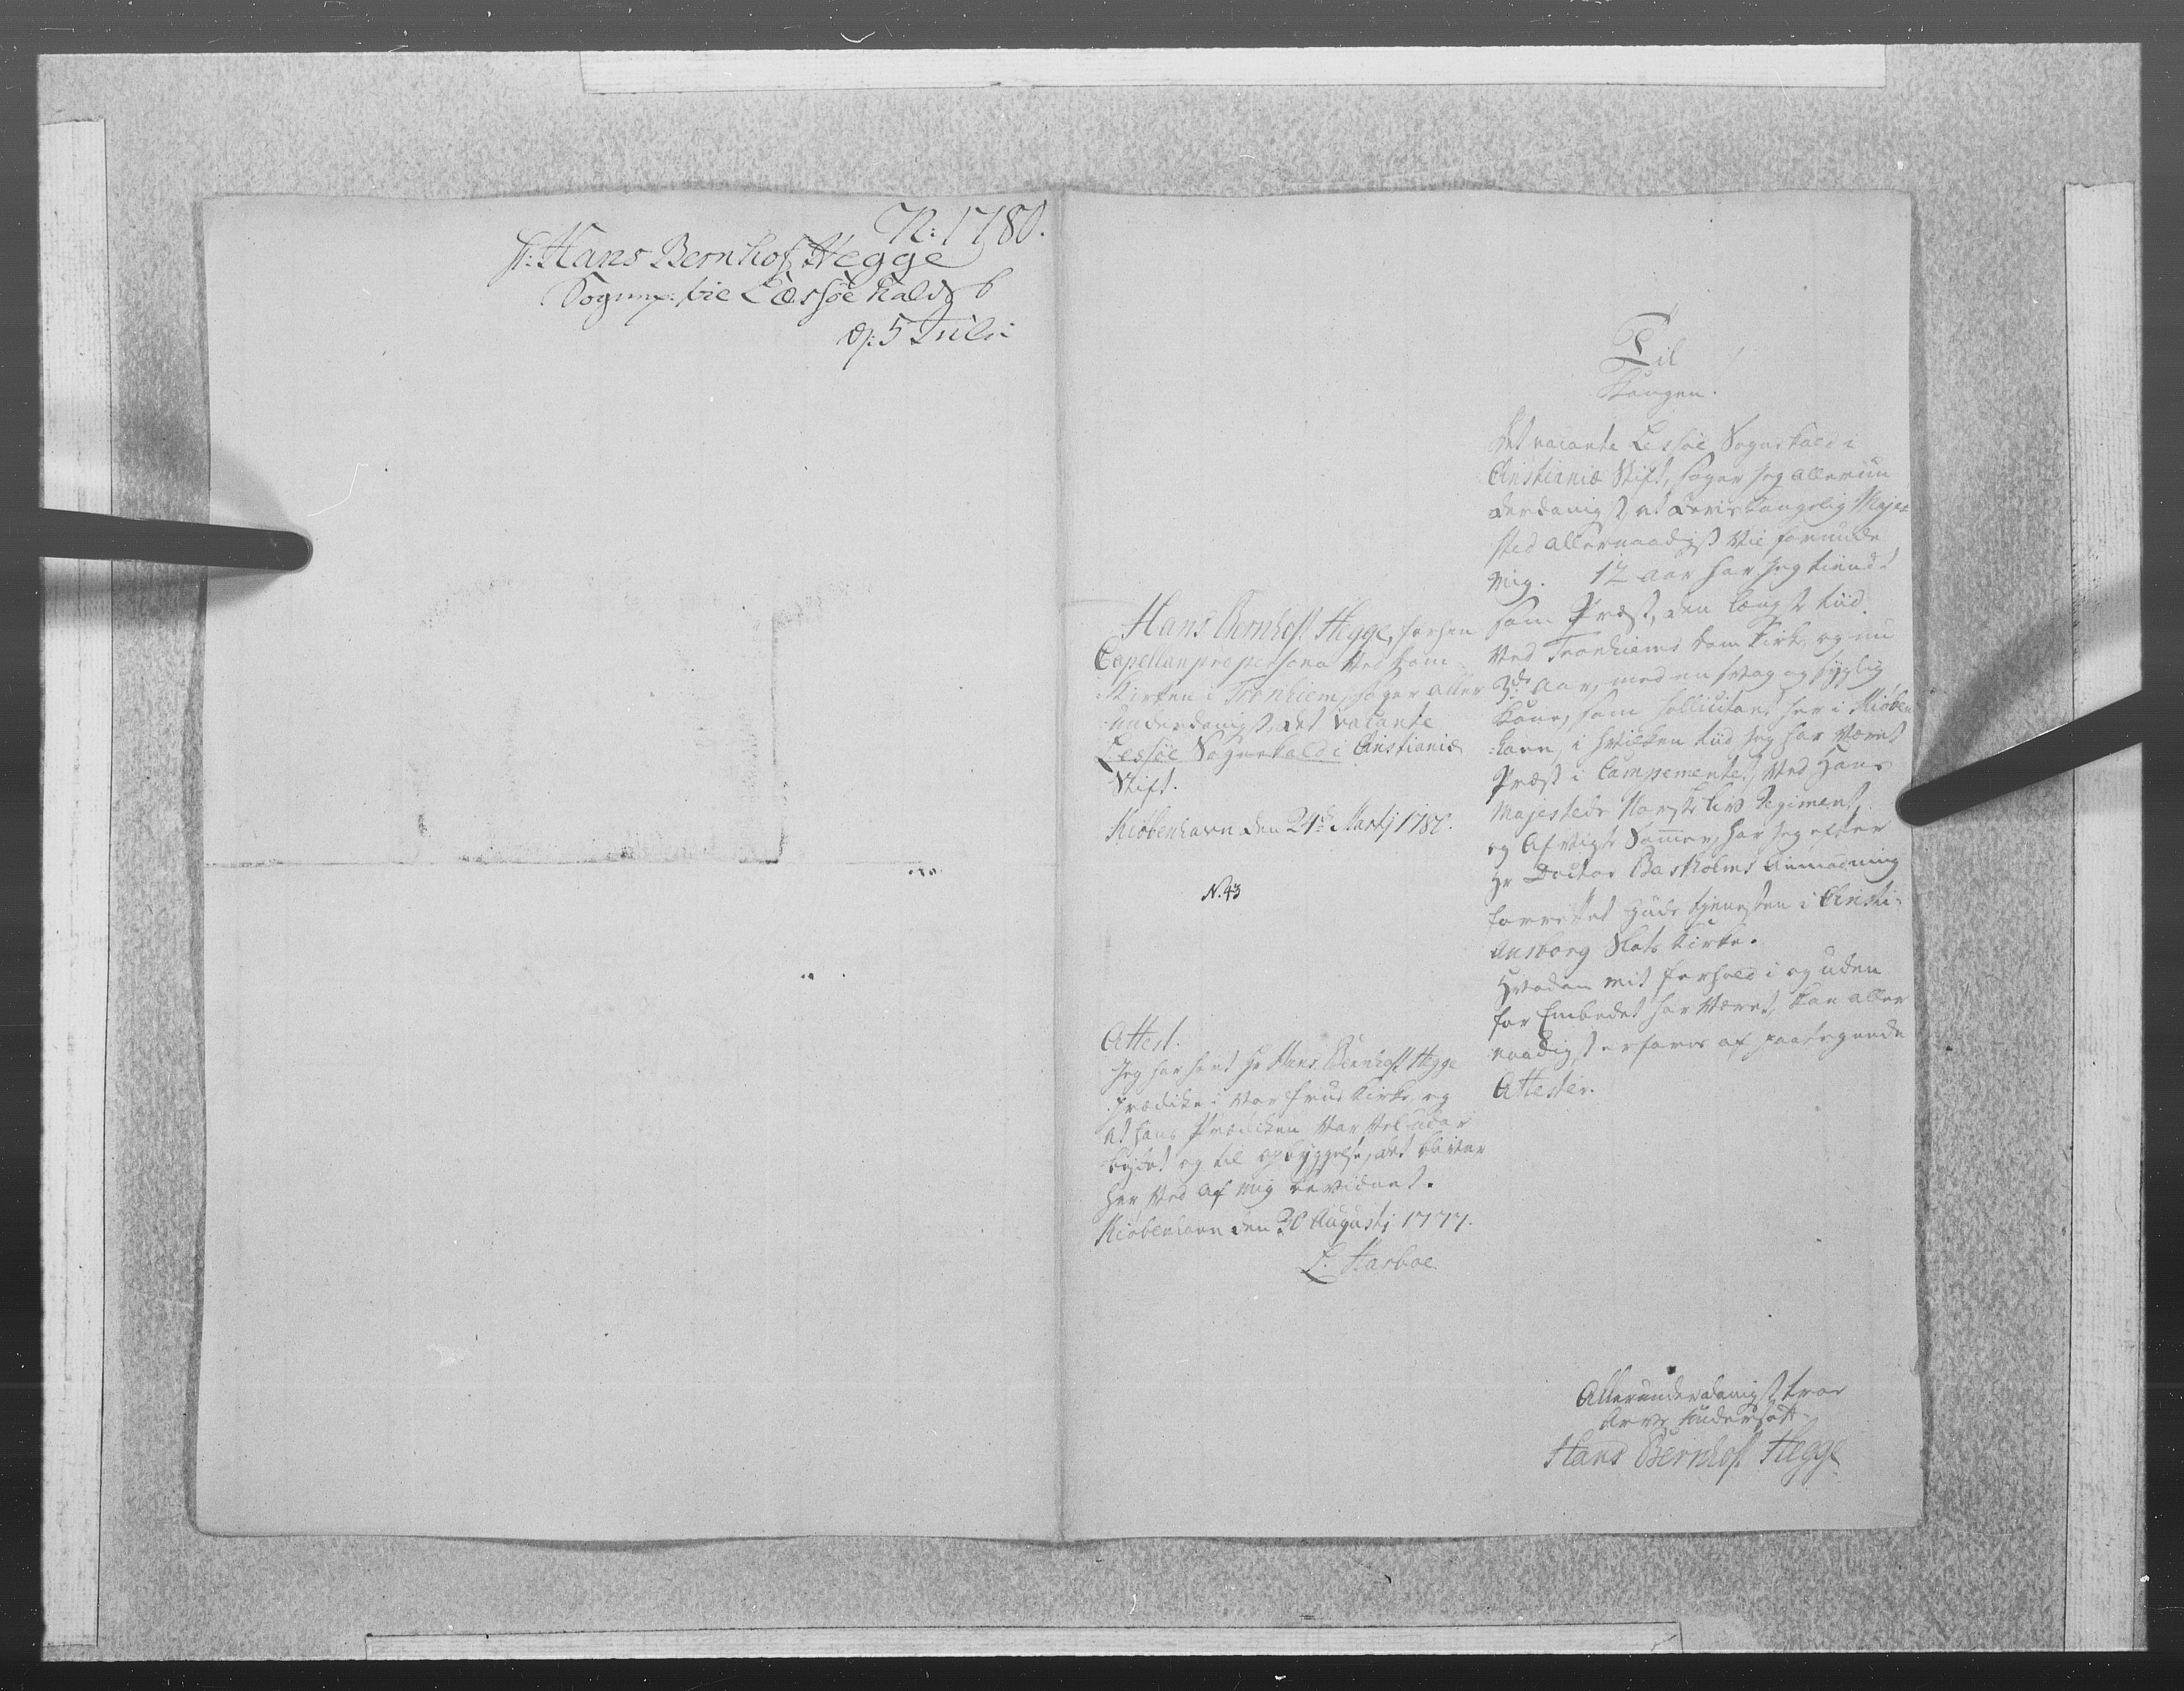 N: 1780.
Hr: Hans Bernhof Hegge
Sognepr: til Læssøe Kald
d: 5 Julii
Hans Bernhoft Hegge, forhen
Capellan pro persona ved Dom
Kirken i Tronhiem, søger aller
underdanigst, det vacante
Lessøe Sognekald i Christianiæ
Stift.
Kiøbenhavn den 24de Martj 1780.
N. 43
Attest.
Jeg har hørt Hr Hans Bernhoft Hegge
prædike i Vor Frue Kirke, og
at hans Prædiken var vel udar
bejdet og til opbyggelse, det bliver
her ved af mig bevidnet.
Kiøbenhavn den 30 Augustj 1777.
L. Harboe
Til
Kongen!
Det vacante Lessøe Sognekald i
Christianiæ Stift, søger jeg allerun
derdanigst, at Deres Kongelig Maje-
sted allernaadigst vil forunde
mig. 12 Aar har jeg tiendt
som Præst, den længste tiid
ved Tronhiems Dom Kirke, og nu
3de Aar, med en svag og syglig
Kone, som sollicitant her i Kiøben
-havn, i hvilken tiid jeg har været
Præst i Campementet, ved Hans
Majesteds Norske Liv Regiment,
og afvigte Sommer, har jeg efter
Hr Doctor Bastholms Anmodning
forrettet Guds tjenesten i Christi-
ansborg Slots Kirke.
Hvordan mit forhold i og uden
for Embedet har været, kan aller
naadigst erfares af paategnede
Attester.
Allerunderdanigst troe
Arve Undersaat
Hans Bernhoft Hegge